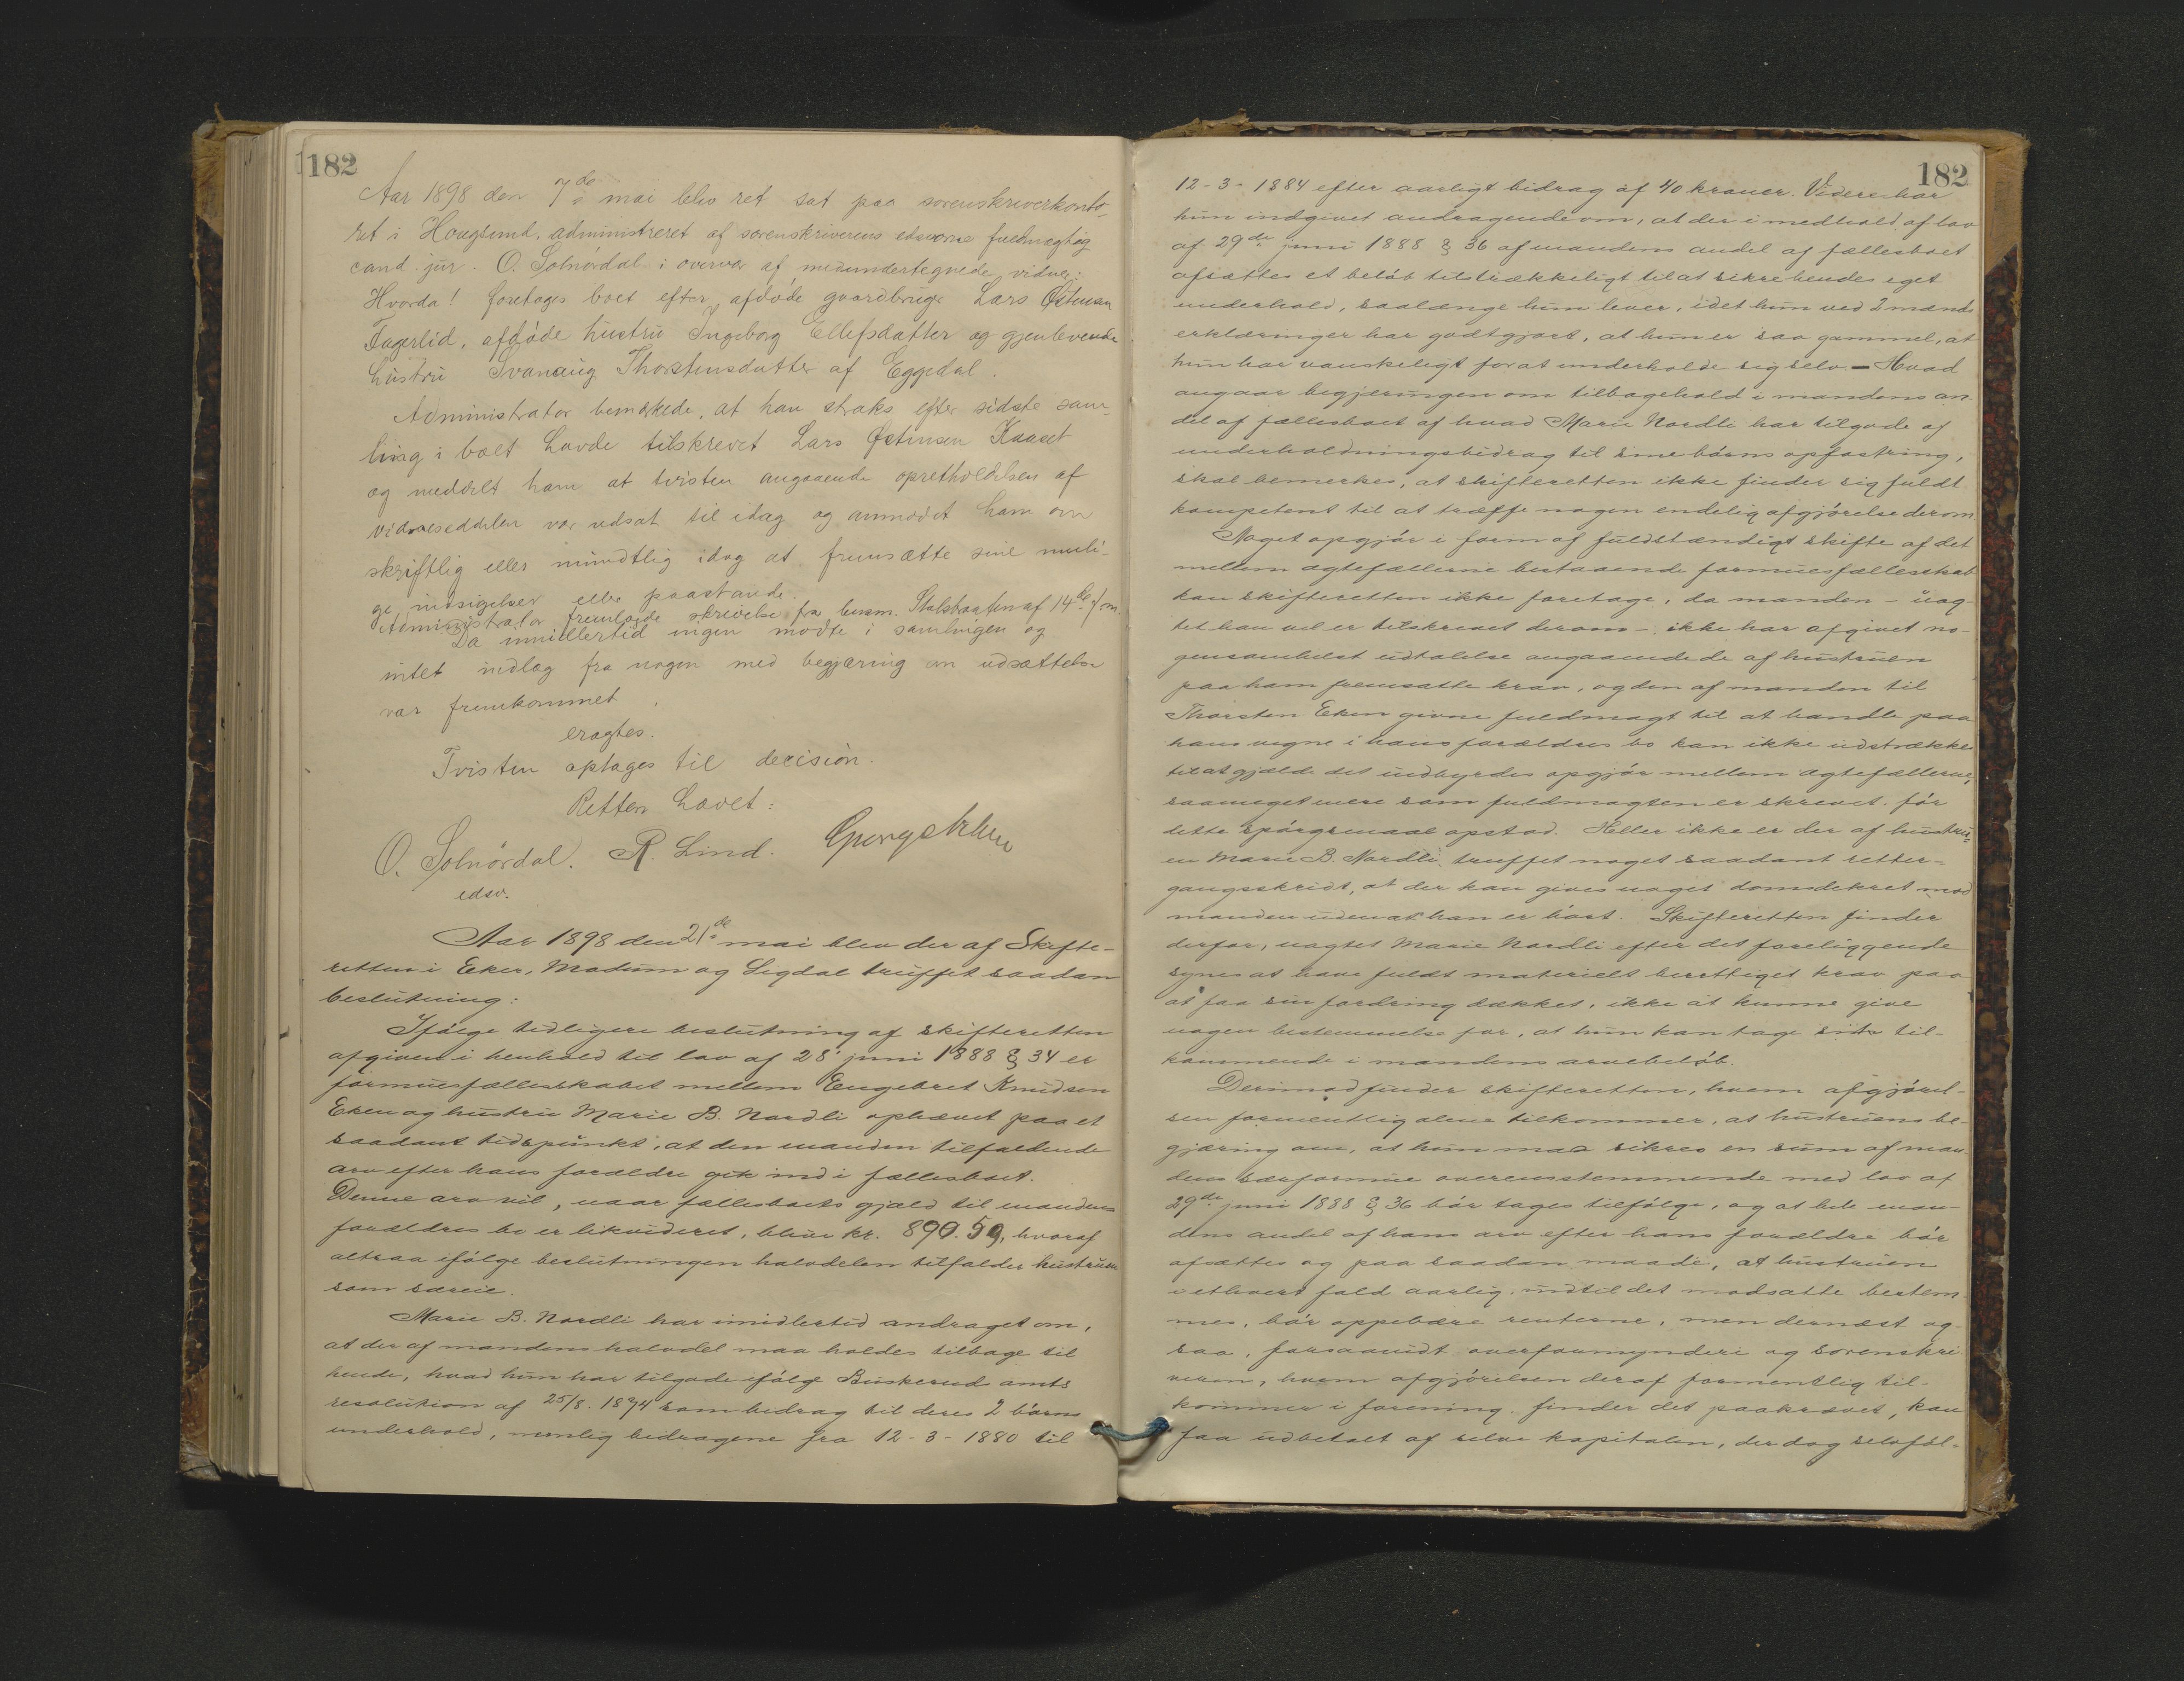 182
Aar 1898 den 7de mai blev ret sat paa sorenskriverkonto-
ret i Hougsund, administreret af sorenskriverens edsvorne fuldmægtig
cand. jur. O. Solnørdal i overvær af medundertegnede vidner:
Hvorda! foretoges boet efter afdøde gaardbruger Lars Østensen
Fagerlid, afdøde hustru Ingeborg Ellefsdatter og gjenlevende
hustru Svanaug Thorstensdatter af Eggedal.
Administrator bemærkede, at han straks efter sidste sam-
ling i boet havde tilskrevet Lars Østensen Kaaset
og meddelt ham at tvisten angaaende opretholdelsen af
vidnesedelen var udsat til idag og anmodet ham om
skriftlig eller mundtlig idag at fremsætte sine muli-
ge indsigelser eller paastande.
Administrator fremlagde skrivelse fra lensm. af 14de
Da imidlertid ingen mødte i samlingen og
intet indlæg fra nogen med begjæring om udsættelse
var fremkommet
eragtes:
Tvisten optages til decision.
Retten hævet:
O. Solnørdal. R. Lind.
edsv.
Aar 1898 den 21de mai blev der af Skifte-
retten i Eker, Modum og Sigdal truffet saadan
beslutning:
Ifølge tidligere beslutning af skifteretten
afgiven i henhold til lov af 28' juni 1888 § 34 er
formuesfællesskabet mellem Engebret Knudsen
Eken og hustru Marie B. Nordli ophævet paa et
saadant tidspunkt, at den manden tilfaldende
arv efter hans forældre gik ind i fællesboet.
Denne arv vil, naar fællesboets gjæld til mandens
forældres bo er likvideret, blive kr. 890.59, hvoraf
altsaa ifølge beslutningen halvdelen tilfalder hustruen
som særeie.
Marie B. Nordli har imidlertid andraget om,
at der af mandens halvdel maa holdes tilbage til
hende, hvad hun har tilgode ifølge Buskerud amts
resolution af 25/8. 1874 som bidrag til deres 2 børns
underhold, nemlig bidragene fra 12-3-1880 til
182
12-3-1884 efter aarligt bidrag af 40 kroner. Videre har
hun indgivet andragende om, at der i medhold af lov
af 29de juni 1888 § 36 af mandens andel af fællesboet
afsættes et beløb tilstrækkeligt til at sikre hendes eget
underhold, saalænge hun lever, idet hun ved 2 mænds
erklæringer har godtgjort, at hun er saa gammel, at
hun har vanskeligt for at underholde sig selv. – Hvad
angaar begjæringen om tilbagehold i mandens an-
del af fællesboet af hvad Marie Nordli har tilgode af
underholdningsbidrag til sine børns opfostring,
skal bemerkes, at skifteretten ikke finder sig fuldt
kompetent til at træffe nogen endelig afgjørelse derom.
Noget opgjør i form af fuldstændigt skifte af det
mellem ægtefællerne bestaaende formuesfællesskab
kan skifteretten ikke foretage, da manden – uag-
tet han vel er tilskrevet derom – ikke har afgivet no-
gensomhelst udtalelse angaaende de af hustruen
paa ham fremsatte krav, og den af manden til
Thorsten Eken givne fuldmagt til at handle paa
hans vegne i hans forældres bo kan ikke udstrækkes
til at gjælde det indbyrdes opgjør mellem ægtefællerne,
saameget mere som fuldmagten er skrevet før
dette spørgsmaal opstod. Heller ikke er der af hustru-
en Marie B. Nordli truffet noget saadant retter-
gangsskridt, at der kan gives noget domsdekret mod
manden uden at han er hørt. Skifteretten finder
derfor, uagtet Marie Nordli efter det foreliggende
synes at have fuldt materielt berettiget krav paa
at faa sin fordring dækket, ikke at kunne give
nogen bestemmelse for, at hun kan tage sit til-
kommende i mandens arvebeløb.
Derimod finder skifteretten, hvem afgjørel-
sen formentlig alene tilkommer, at hustruens be-
gjæring om, at hun maa sikres en sum af man-
dens særformue overensstemmende med lov af
29de juni 1888 § 36 bør tages tilfølge, og at hele man-
dens andel af hans arv efter hans forældre bør
afsættes og paa saadan maade, at hustruen
i ethvert fald aarlig, indtil det modsatte bestem-
mes, bør oppebære renterne, men dernæst og-
saa, forsaavidt overformynderi og sorenskri-
veren, hvem afgjørelsen deraf formentlig til-
kommer i forening, finder det paakrævet, kan
faa udbetalt af selve kapitalen, der dog selvføl-